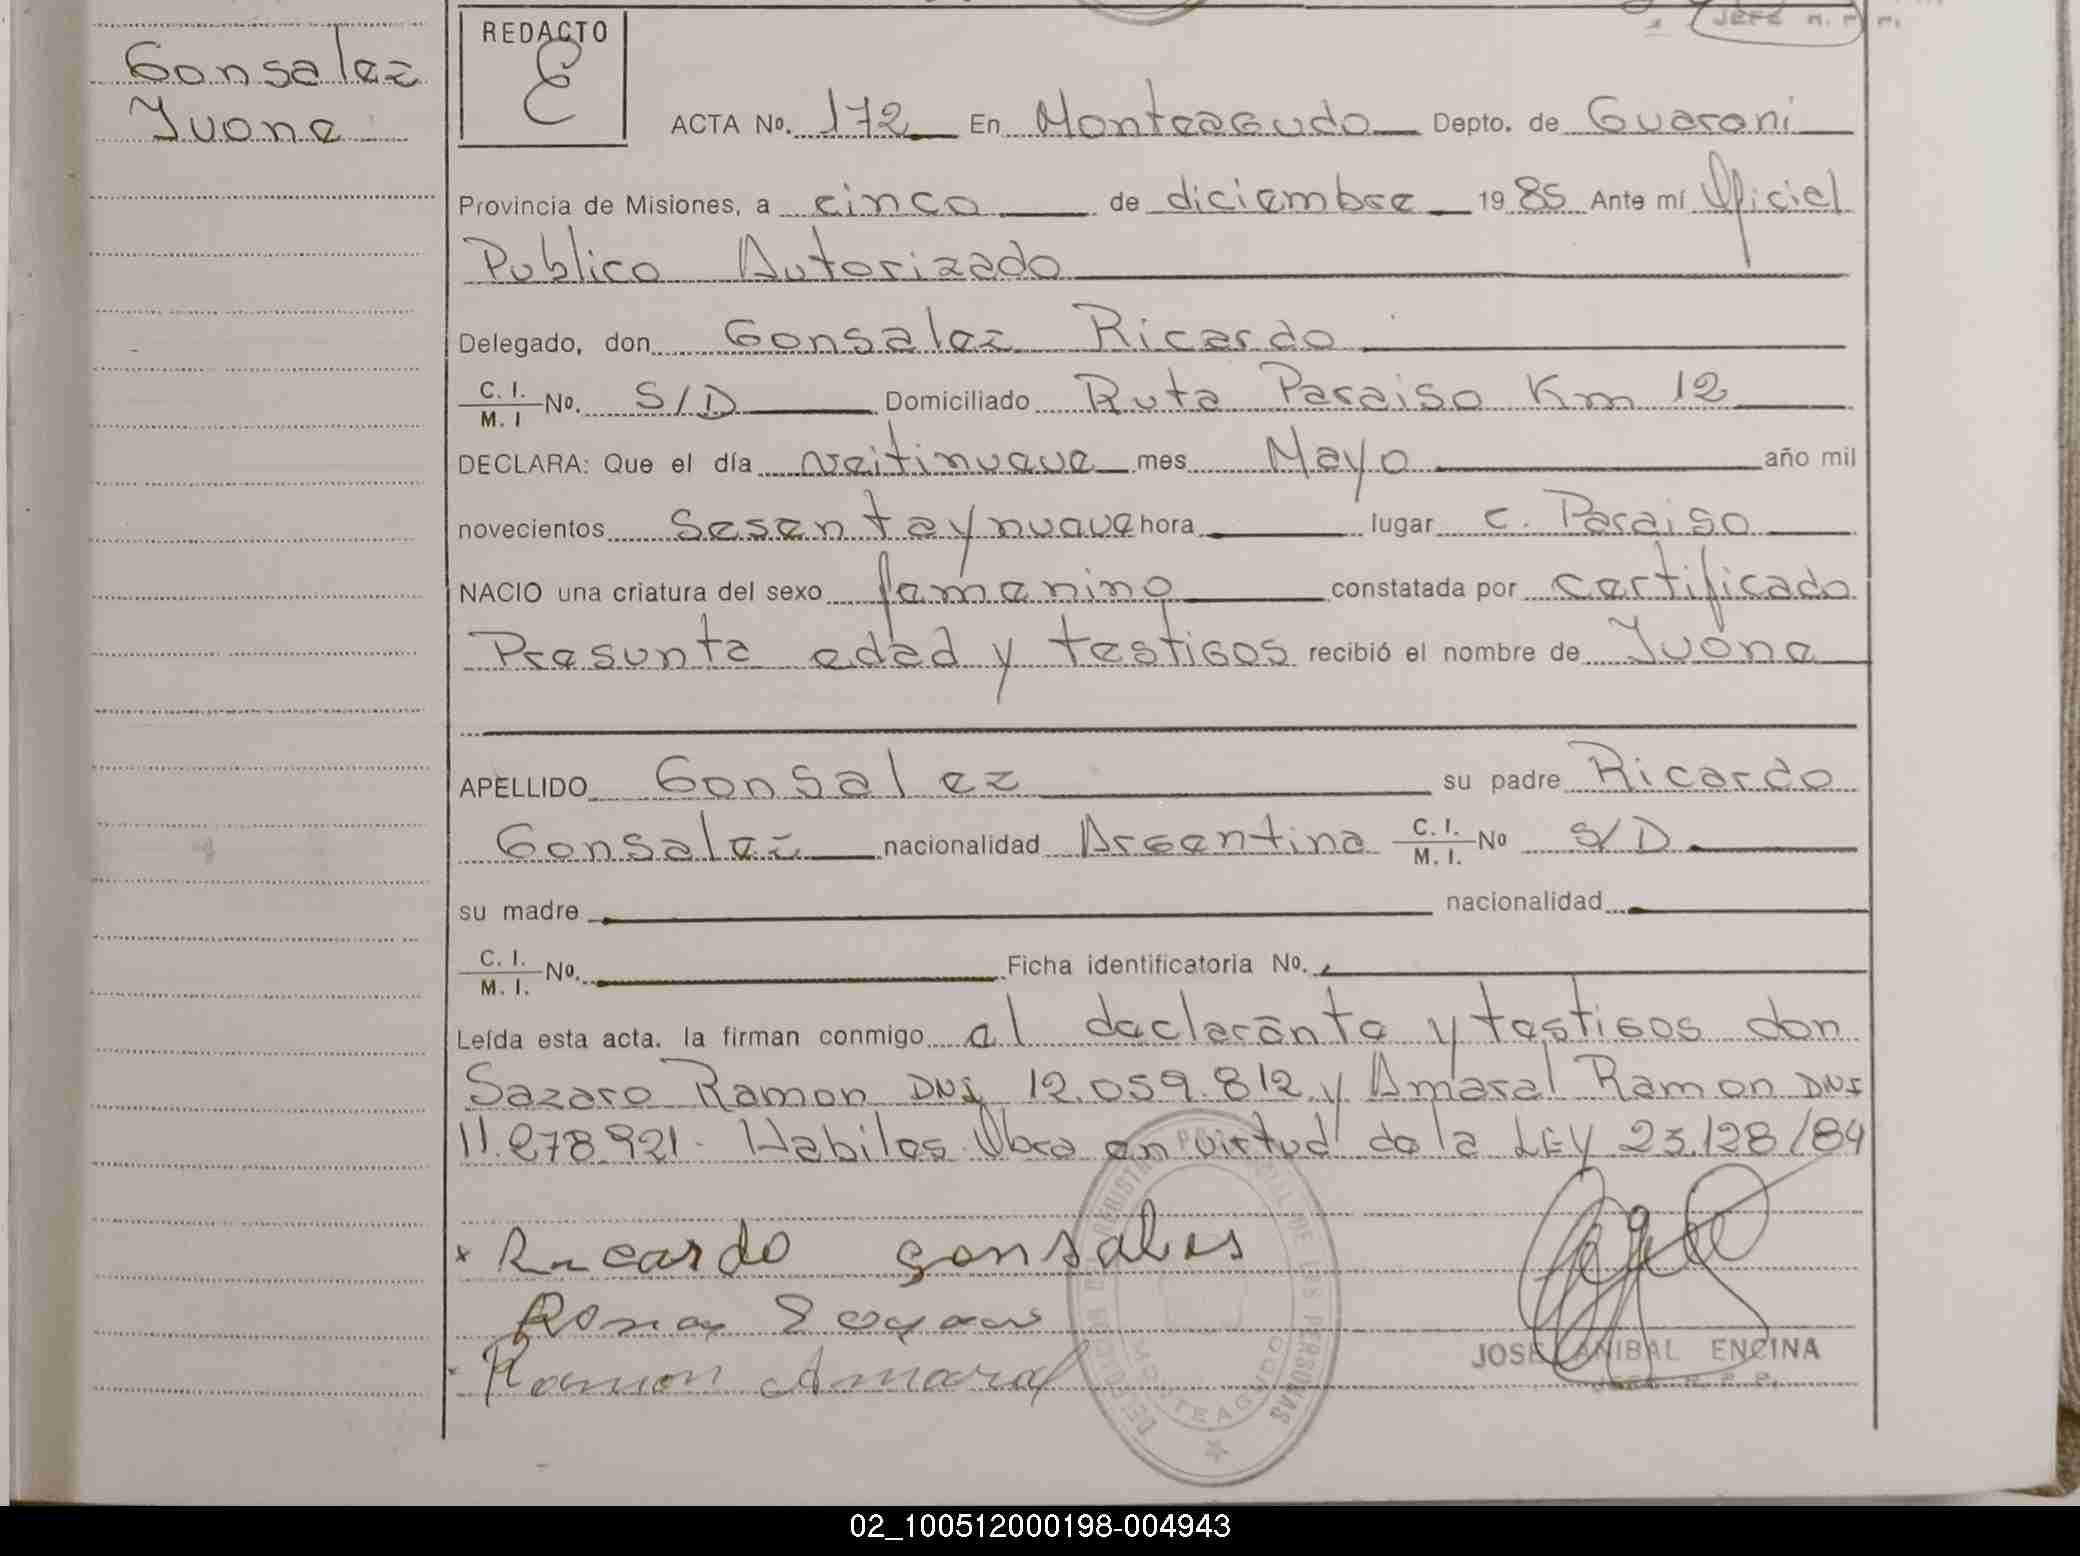 JEFE R. P. P.
Gonsalez
Ivone
REDACTO
E
ACTA No. 172 En Monteagudo Depto. de Guarani
Provincia de Misiones, a cinco de diciembre 19 85 Ante mí Oficial
Publico Autorizado
Delegado, don Gonsalez Ricardo
C. I. / M. I No. S/D Domiciliado Ruta Paraiso Km 12
DECLARA: Que el día veitinueve mes Mayo año mil
novecientos Sesentaynueve hora lugar C. Paraiso
NACIO una criatura del sexo femenino constatada por certificado
Presunta edad y testigos recibió el nombre de Ivone
APELLIDO Gonsalez su padre Ricardo
Gonsalez nacionalidad Argentina C. I. / M. I. No S/D
su madre nacionalidad
C. I. / M. I. No. Ficha identificatoria No.
Leída esta acta, la firman conmigo el declarante y testigos don
Sazaro Ramon DNI 12.059.812 y Amaral Ramon DNI
11.278.921. Habiles. Obra en virtud de la LEY 23.128/84
x Ricardo gonsales
Ramon Amaral
JOSE ANIBAL ENCINA
JEFE R. P. P.
DELEGACION DEL REGISTRO PROVINCIAL DE LAS PERSONAS
MONTEAGUDO
02_100512000198-004943